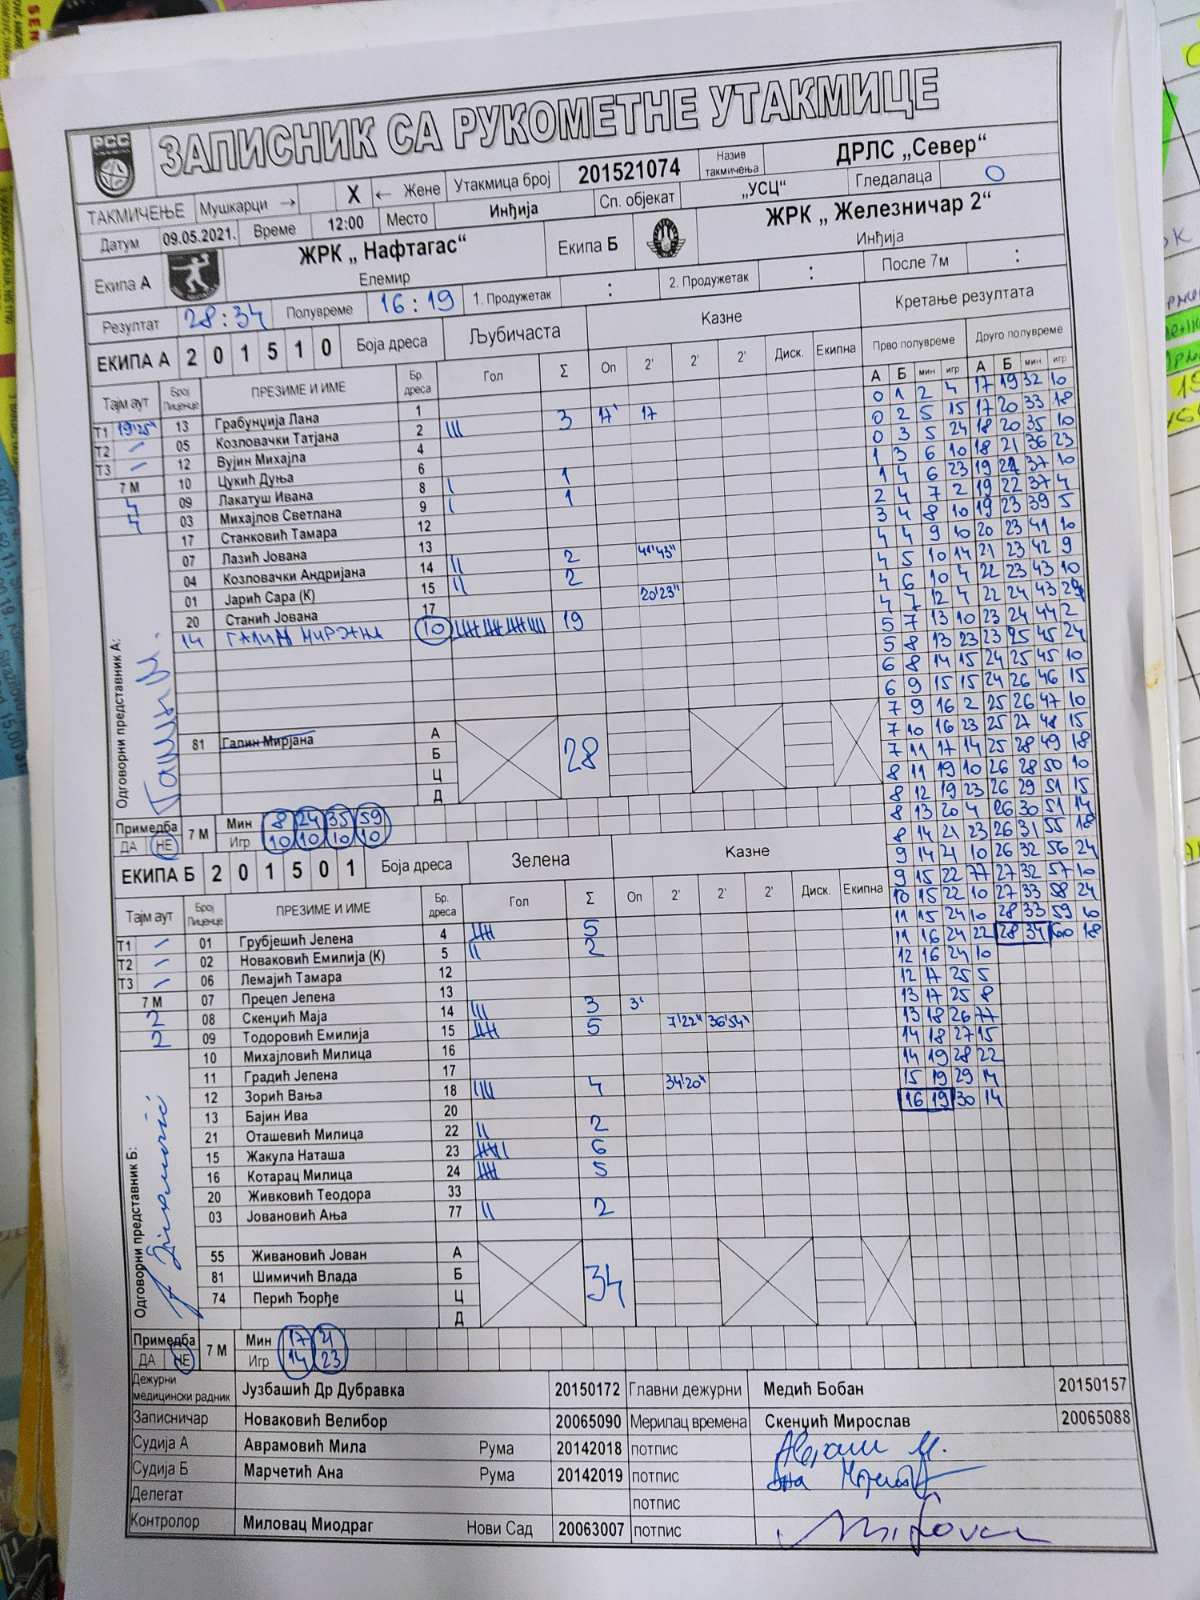 РСС
ЗАПИСНИК СА РУКОМЕТНЕ УТАКМИЦЕ
ТАКМИЧЕЊЕ Мушкарци → X ← Жене Утакмица број 201521074 Назив такмичења ДРЛС „Север“
Датум 09.05.2021. Време 12:00 Место Инђија Сп. објекат „УСЦ“ Гледалаца 0
Екипа А ЖРК „ Нафтагас“ Елемир Екипа Б ЖРК „ Железничар 2“ Инђија
Резултат 28:34 Полувреме 16:19 1. Продужетак : 2. Продужетак : После 7м :
ЕКИПА А 2 0 1 5 1 0 Боја дреса Љубичаста Казне Кретање резултата
Прво полувреме Друго полувреме
Тајм аут Број Лиценце ПРЕЗИМЕ И ИМЕ Бр. дреса Гол Σ Оп 2' 2' 2' Диск. Екипна А Б мин игр А Б мин игр
Т1 19'25" 13 Грабунџија Лана 1
Т2 / 05 Козловачки Татјана 2 III 3 17' 17
Т3 / 12 Вујин Михајла 4
7 М 10 Цукић Дуња 6
4 09 Лакатуш Ивана 8 I 1
4 03 Михајлов Светлана 9 I 1
17 Станковић Тамара 12
07 Лазић Јована 13 41'43"
04 Козловачки Андријана 14 II 2
01 Јарић Сара (К) 15 II 2 20'23"
20 Станић Јована 17
14 ГАЛИН МИРЈАНА 10 19
81 Галин Мирјана А
Б
Ц
Д
28
Одговорни представник А:
Примедба ДА НЕ 7 М Мин 8 24 35 59
Игр 10 10 10 10
ЕКИПА Б 2 0 1 5 0 1 Боја дреса Зелена Казне
Тајм аут Број Лиценце ПРЕЗИМЕ И ИМЕ Бр. дреса Гол Σ Оп 2' 2' 2' Диск. Екипна
Т1 / 01 Грубјешић Јелена 4 5
Т2 / 02 Новаковић Емилија (К) 5 II 2
Т3 / 06 Лемајић Тамара 12
7 М 07 Прецеп Јелена 13
2 08 Скенџић Маја 14 III 3 3'
2 09 Тодоровић Емилија 15 5 7'22" 36'54"
10 Михајловић Милица 16
11 Градић Јелена 17
12 Зорић Вања 18 IIII 4 34'20"
13 Бајин Ива 20
21 Оташевић Милица 22 II 2
15 Жакула Наташа 23 6
16 Котарац Милица 24 5
20 Живковић Теодора 33
03 Јовановић Ања 77 II 2
55 Живановић Јован А
81 Шимичић Влада Б
74 Перић Ђорђе Ц
Д
34
Одговорни представник Б:
Примедба ДА НЕ 7 М Мин 17 21
Игр 14 23
0 1 2 4 17 19 32 10
0 2 5 15 17 20 33 18
0 3 5 24 18 20 35 10
1 3 6 10 18 21 36 23
1 4 6 23 19 21 37 10
2 4 7 2 19 22 37 4
3 4 8 10 19 23 39 5
4 4 9 10 20 23 41 10
4 5 10 14 21 23 42 9
4 6 10 4 22 23 43 10
4 7 12 4 22 24 43 24
5 7 13 10 23 24 44 2
5 8 13 23 23 25 45 24
6 8 14 15 24 25 45 10
6 9 15 15 24 26 46 15
7 9 16 2 25 26 47 10
7 10 16 23 25 27 48 15
7 11 17 14 25 28 49 18
8 11 19 10 26 28 50 10
8 12 19 23 26 29 51 15
8 13 20 4 26 30 51 14
8 14 21 23 26 31 55 18
9 14 21 10 26 32 56 24
9 15 22 77 27 32 57 10
10 15 22 10 27 33 58 24
11 15 24 10 28 33 59 10
11 16 24 22 28 34 60 18
12 16 24 10
12 17 25 5
13 17 25 8
13 18 26 77
14 18 27 15
14 19 28 22
15 19 29 14
16 19 30 14
Дежурни медицински радник Јузбашић Др Дубравка 20150172 Главни дежурни Медић Бобан 20150157
Записничар Новаковић Велибор 20065090 Мерилац времена Скенџић Мирослав 20065088
Судија А Аврамовић Мила Рума 20142018 потпис
Судија Б Марчетић Ана Рума 20142019 потпис
Делегат потпис
Контролор Миловац Миодраг Нови Сад 20063007 потпис